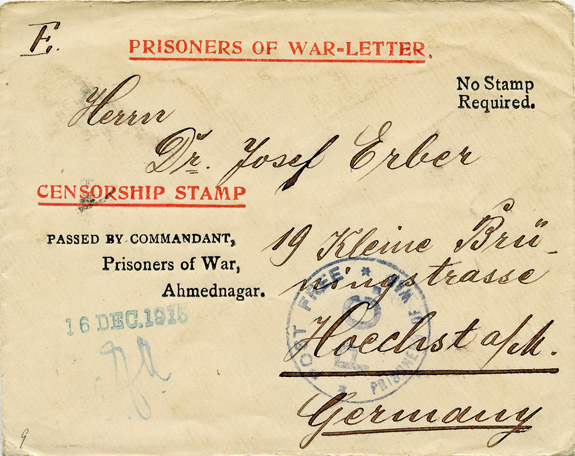 F.
PRISONERS OF WAR-LETTER.
No Stamp
Required.
Herrn
Dr. Josef Erber
CENSORSHIP STAMP
PASSED BY COMMANDANT,
Prisoners of War,
Ahmednagar.
19 Kleine Brü-
ningstrasse
POST FREE
PRISONE OF WAR
16 DEC.1915
Hoechst a/M.
Germany